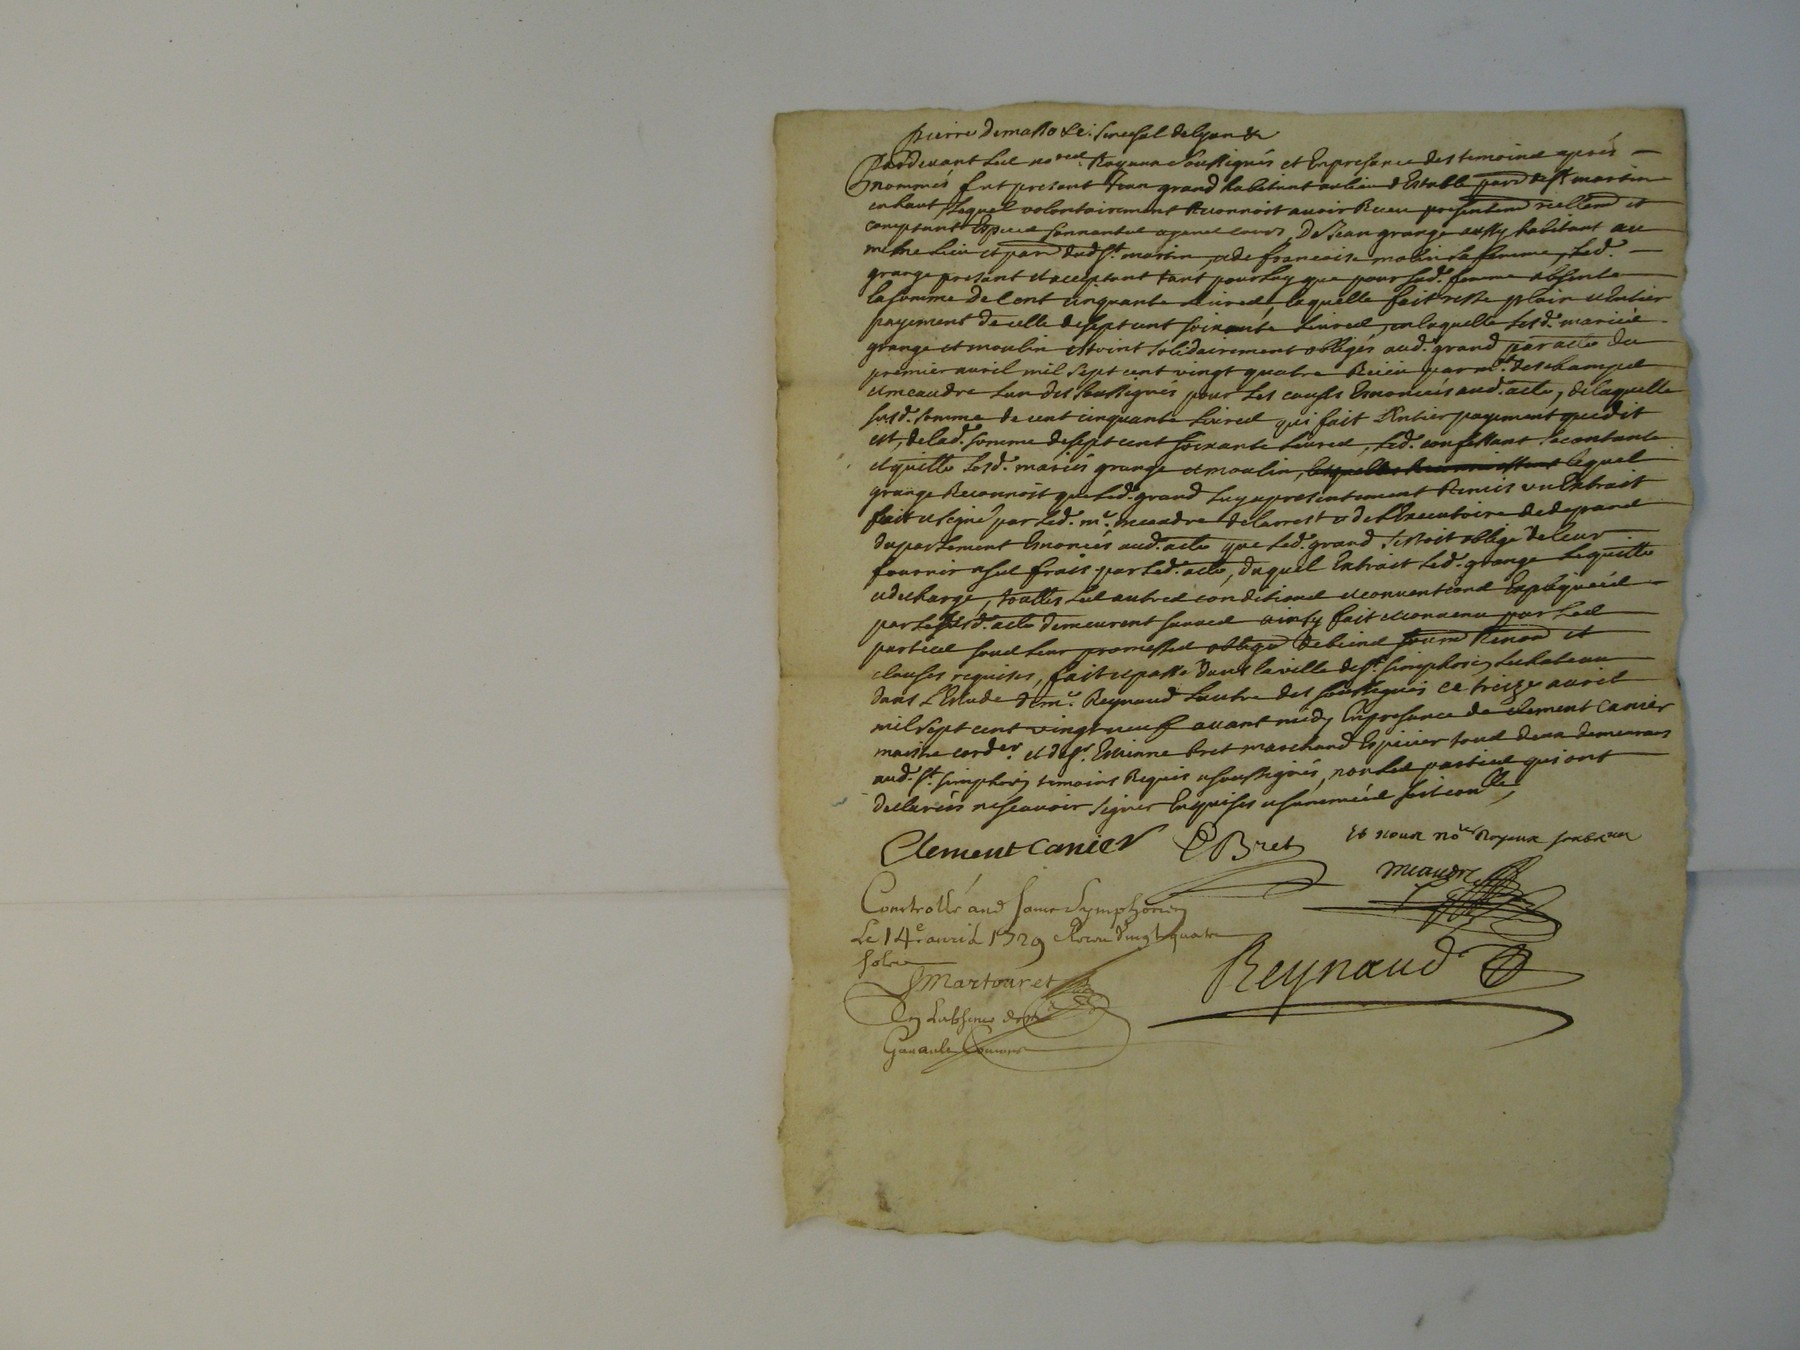 pierre demasso &c: senechal de lyon &c
Pardevant les no.res Royaux soussignés et En presance des temoins aprés
nommés fut present Jean grand habitant au lieu d'Estable parr. de st. martin
en haut, Lequel volontairement Reconnoit avoir Receu presentem. réellem. et
comptant Especes sonnantes ayant cours, De Jean grange aussy habitant au
même lieu et parr. dud. st. martin, & de francoise moulin sa femme, Led.
grange present et acceptant tant pour luy que pour sad. femme absente
la somme de Cent cinquante Livres, laquelle fait reste plain & Entier
payement de celle de sept cent soixante Livres, en laquelle Lesd. mariés
grange et moulin estoint solidairement obligés aud. grand par acte du
premier avril mil sept cent vingt quatre Receu par mes. deschamps
et meaudre L'un des soussignés pour Les causes Enoncées aud. acte, de laquelle
susd. somme de cent cinquante Livres qui fait L'entier payement que dit
est, de lad. somme de sept cent soixante Livres, Led. confessant se contante
et quitte Lesd. mariés grange et moulin, lesquels Reconnoissent lequel
grange Reconnoit que Led. grand Luy a presentement Remis un Extrait
fait & signé par Led. me. meaudre de l'arrest & de l'Executoire de depand
du parlement Enoncés aud. acte que Led. grand s'estoit obligé de leur
fournir a ses frais par Led. acte, duquel Extrait Led. grange Le quitte
& decharge, touttes Les autres conditions & conventions Expliquées
par Le susd. acte demeurent sauves ainsy fait & convenu par Les
parties sous Leur promesses obligaon de biens soumon Renonon et
clauses requises, fait & passé dans la ville de st. simphorien Le chateau
dans L'Etude de me. Reynaud L'autre des soussignés ce treize avril
mil sept cent vingt neuf avant midy En presance de clement Canier
maitre corder. et de sr. Estienne bret marchand Espicier tous deux demeurans
aud. st. simphorien temoins Requis & soussignés, non Les parties qui ont
declarées ne scavoir signer Enquises & sommées soit conllé,
Clement Canier
E Bret
Et nous nores Royaux soubsnes
meaudre
Reynaud
Controllé aud saint Symphorien
Le 14e. avril 1729 Receu vingt quatre
sols
Martouret
En L'absence de mr
Commis